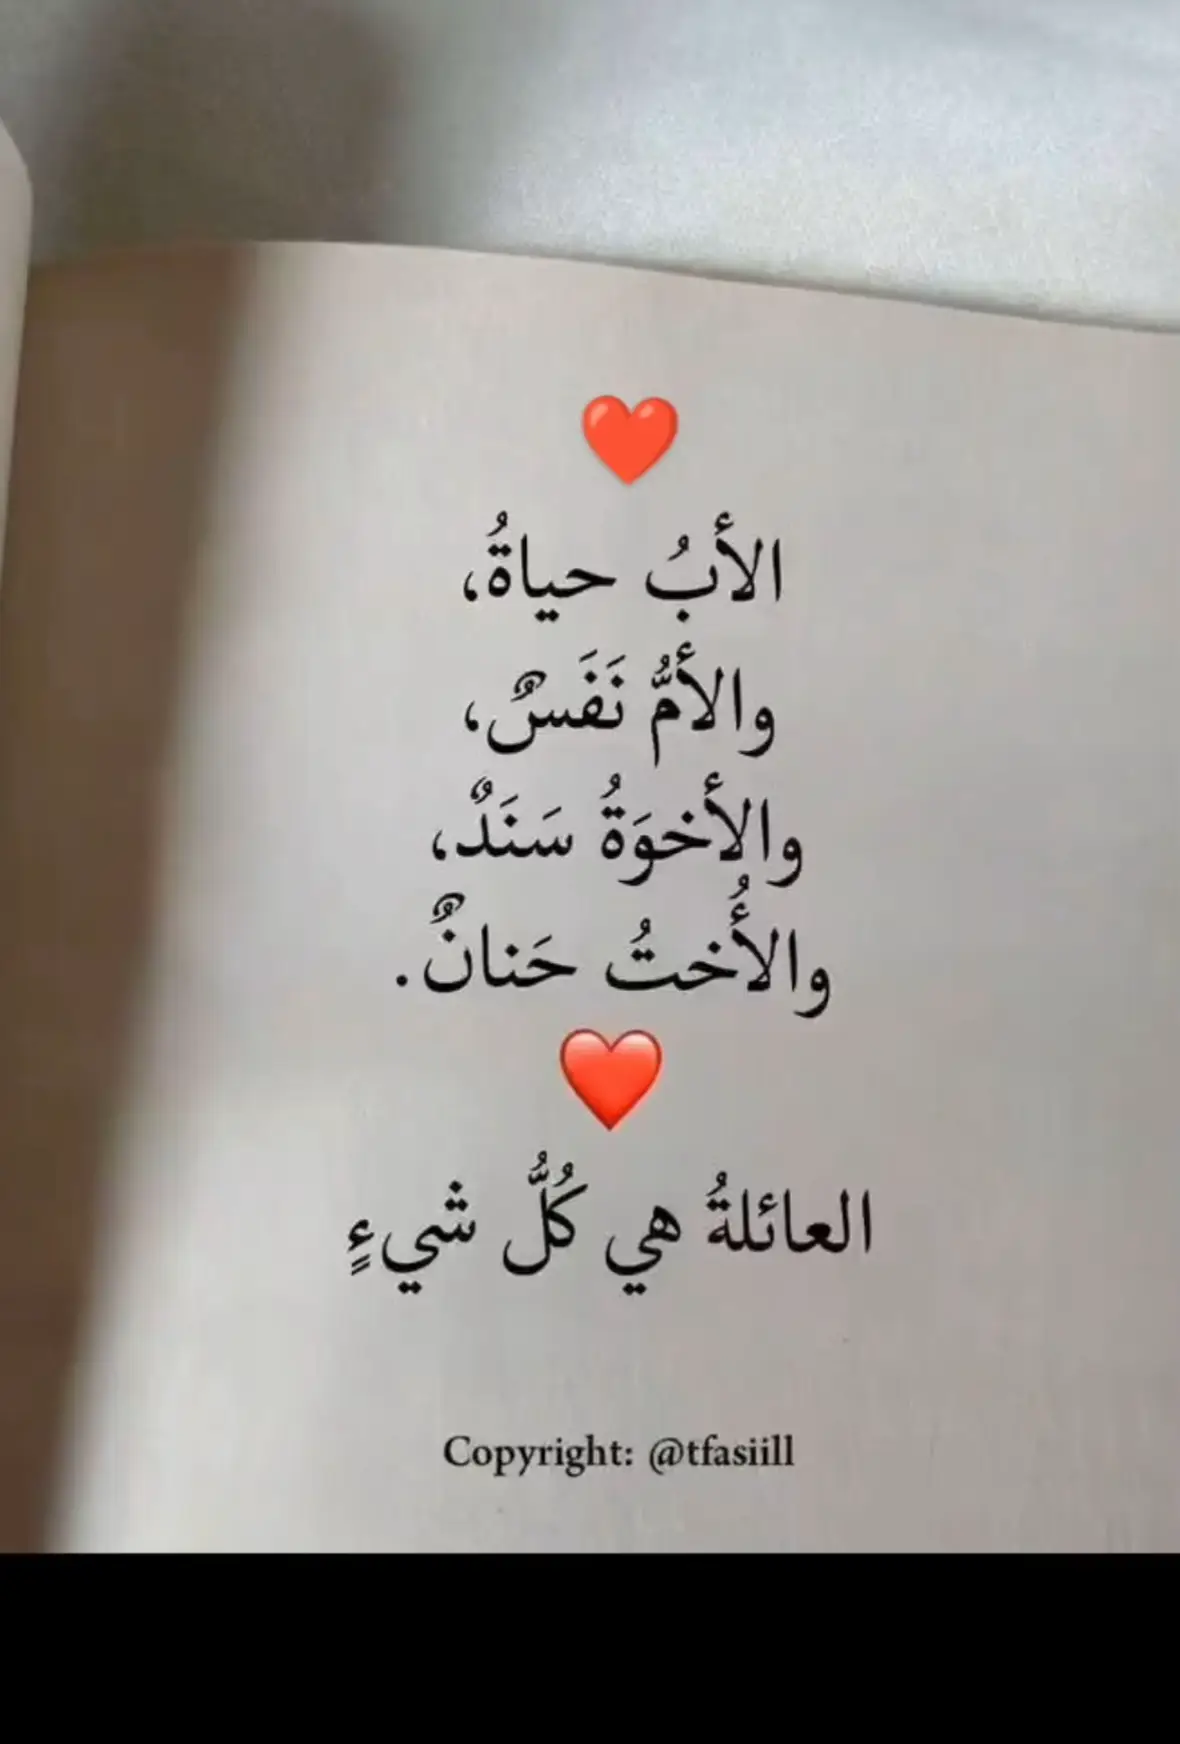 ❤️
الأبُ حياةُ،
والأمُّ نَفَسٌ،
والأخوَةُ سَنَدٌ،
والأُختُ حَنانٌ.
❤️
العائلةُ هي كُلُّ شيءٍ
Copyright: @tfasiill